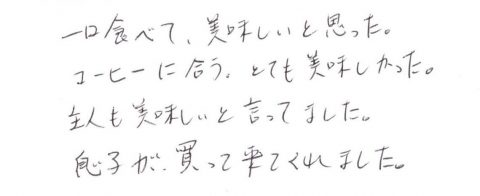 一口食べて、美味しいと思った。
コーヒーに合う。とても美味しかった。
主人も美味しいと言ってました。
息子が、買って来てくれました。